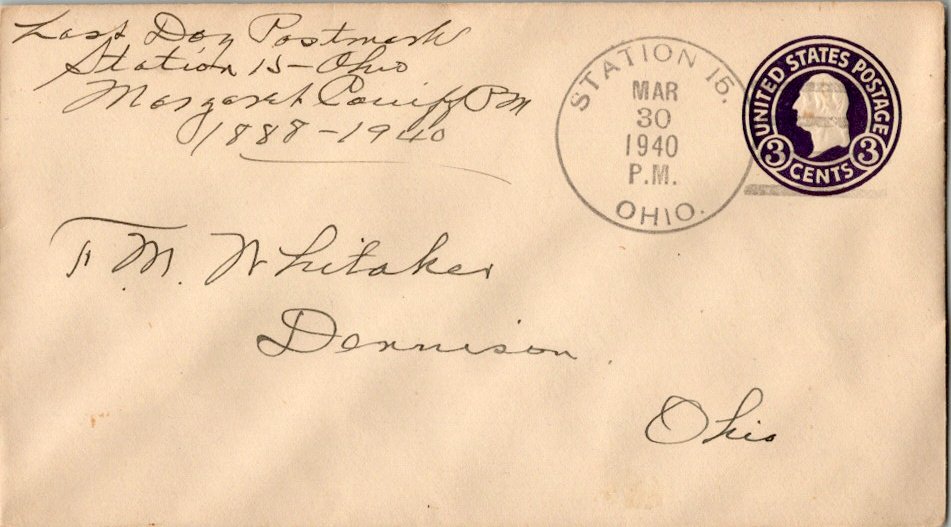 Last Day Postmark
Station 15 - Ohio
Margaret PM
1888 - 1940
STATION 15.
MAR
30
1940
P.M.
OHIO.
UNITED STATES POSTAGE
3 CENTS 3
F. M. Whitaker
Dennison
Ohio